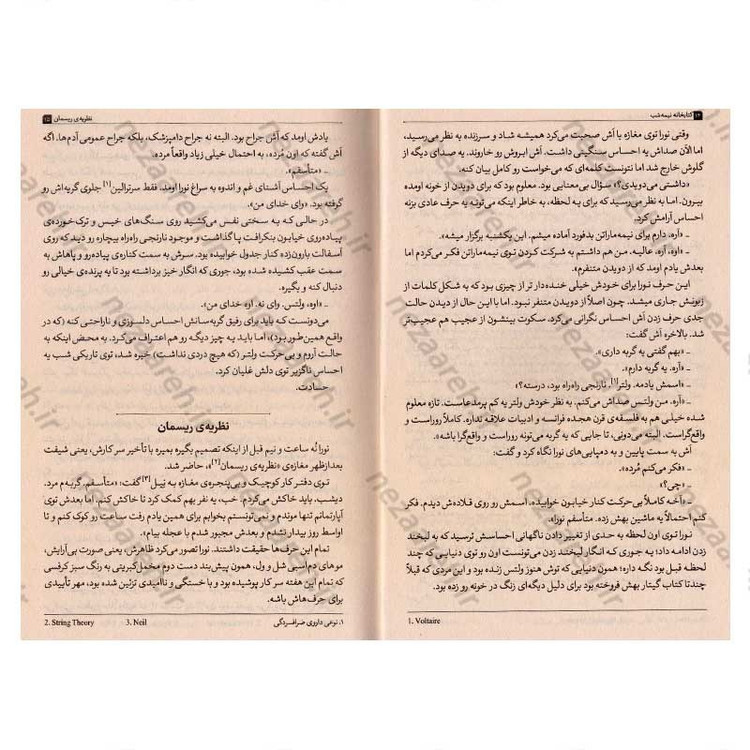 ۱۴ کتابخانه نیمه‌شب
وقتی نورا توی مغازه با آش صحبت می‌کرد همیشه شاد و سرزنده به نظر می‌رسید،
اما الآن صداش یه احساس سنگینی داشت. آش ابروش رو خاروند. یه صدای دیگه از
گلوش خارج شد اما نتونست کلمه‌ای که می‌خواست رو کامل بیان کنه.
«داشتی می‌دویدی؟» سؤال بی‌معنایی بود. معلوم بود که برای دویدن از خونه اومده
بیرون. اما به نظر می‌رسید که برای یه لحظه، به خاطر اینکه می‌تونه یه حرف عادی بزنه
احساس آرامش کرد.
ـ «آره. دارم برای نیمه‌ماراتن بدفورد آماده میشم. این یکشنبه برگزار میشه».
ـ «اوه، آره. عالیه. من هم داشتم به شرکت کردن توی نیمه‌ماراتن فکر می‌کردم اما
بعدش یادم اومد که از دویدن متنفرم».
این حرف نورا برای خودش خیلی خنده‌دار تر از چیزی بود که به شکل کلمات از
زبونش جاری میشد. چون اصلاً از دویدن متنفر نبود. اما با این حال از دیدن حالت
جدی حرف زدن آش احساس نگرانی می‌کرد. سکوت بینشون از عجیب هم عجیب‌تر
شد. بالاخره آش گفت:
ـ «بهم گفتی یه گربه داری».
ـ «آره. یه گربه دارم».
ـ «اسمش یادمه. ولتر[۱]. نارنجی راه‌راه بود، درسته؟»
ـ «آره. من ولتس صداش می‌کنم. به نظر خودش ولتر یه کم پرمدعاست. تازه معلوم
شده خیلی هم به فلسفه‌ی قرن هجده فرانسه و ادبیات علاقه نداره. کاملاً روراست و
واقع‌گراست. البته می‌دونی، تا جایی که یه گربه می‌تونه روراست و واقع‌گرا باشه».
آش به سمت پایین و به دمپایی‌های نورا نگاه کرد و گفت:
ـ «فکر می‌کنم مُرده».
ـ «چی؟»
ـ «آخه کاملاً بی‌حرکت کنار خیابون خوابیده. اسمش رو روی قلاده‌ش دیدم. فکر
کنم احتمالاً یه ماشین بهش زده. متأسفم نورا».
نورا توی اون لحظه به حدی از تغییر دادن ناگهانی احساسش ترسید که به لبخند
زدن ادامه داد؛ یه جوری که انگار لبخند زدن می‌تونست اون رو توی دنیایی که چند
لحظه قبل بود نگه داره؛ همون دنیایی که توش هنوز ولتس زنده بود و این مردی که قبلاً
چندتا کتاب گیتار بهش فروخته بود برای دلیل دیگه‌ای زنگ در خونه رو زده بود.
1. Voltaire
نظریه‌ی ریسمان ۱۵
یادش اومد که آش جراح بود. البته نه جراح دامپزشک، بلکه جراح عمومی آدم‌ها. اگه
آش گفته که اون مُرده، به احتمال خیلی زیاد واقعاً مرده.
ـ «متأسفم».
یک احساس آشنای غم و اندوه به سراغ نورا اومد. فقط سرترالین[۱] جلوی گریه‌ش رو
گرفته بود. «وای خدای من».
در حالی که به سختی نفس می‌کشید روی سنگ‌های خیس و ترک‌خورده‌ی
پیاده‌روی خیابون بنکرافت پا گذاشت و موجود نارنجی راه‌راه بیچاره رو دید که روی
آسفالت بارون‌زده کنار جدول خوابیده بود. سرش به سمت کناره‌ی پیاده‌رو و پاهاش به
سمت عقب کشیده شده بود، جوری که انگار خیز برداشته بود تا یه پرنده‌ی خیالی رو
دنبال کنه و بگیره.
ـ «اوه، ولتس. وای نه. اره خدای من».
می‌دونست که باید برای رفیق گربه‌سانش احساس دلسوزی و ناراحتی کنه (که در
واقع همین‌طور بود)، اما باید یه چیز دیگه رو هم اعتراف می‌کرد. به محض اینکه به
حالت آروم و بی‌حرکت ولتر (که هیچ دردی نداشت) خیره شد، توی تاریکی شب یه
احساس ناگزیر توی دلش غلیان کرد.
حسادت.
نظریه‌ی ریسمان
نورا نُه ساعت و نیم قبل از اینکه تصمیم بگیره بمیره با تأخیر سر کارش، یعنی شیفت
بعدازظهر مغازه‌ی «نظریه‌ی ریسمان[۲]»، حاضر شد.
توی دفتر کار کوچیک و بی‌پنجره‌ی مغازه به نِیل[۳] گفت: «متأسفم. گربه‌م مرد.
دیشب. باید خاکش می‌کردم. خب، یه نفر بهم کمک کرد تا خاکش کنم. اما بعدش توی
آپارتمانم تنها موندم و نمی‌تونستم بخوابم برای همین یادم رفت ساعت رو کوک کنم و تا
اواسط روز بیدار نشدم و بعدش مجبور شدم با عجله بیام».
تمام این حرف‌ها حقیقت داشتند. نورا تصور می‌کرد ظاهرش، یعنی صورت بی‌آرایش،
موهای دم‌اسبی شل و ول، همون پیش‌بند دست دوم مخمل‌کبریتی به رنگ سبز کرفسی
که تمام این هفته سر کار پوشیده بود و با خستگی و ناامیدی تزئین شده بود، مهر تأییدی
برای حرف‌هاش باشه.
۱. نوعی داروی ضدافسردگی
3. Neil
2. String Theory
nezaareh.ir